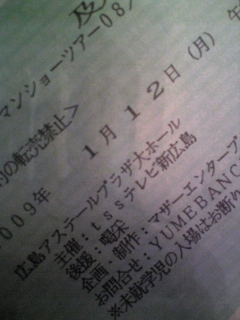 及
マンショーツアー08/
的の転売禁止>
009年 1月12日(月) 午
広島アステールプラザ大ホール
主催:tssテレビ新広島
後援:
企画 制作:マザーエンタープ
お問合せ:YUMEBANC
※未就学児の入場はお断